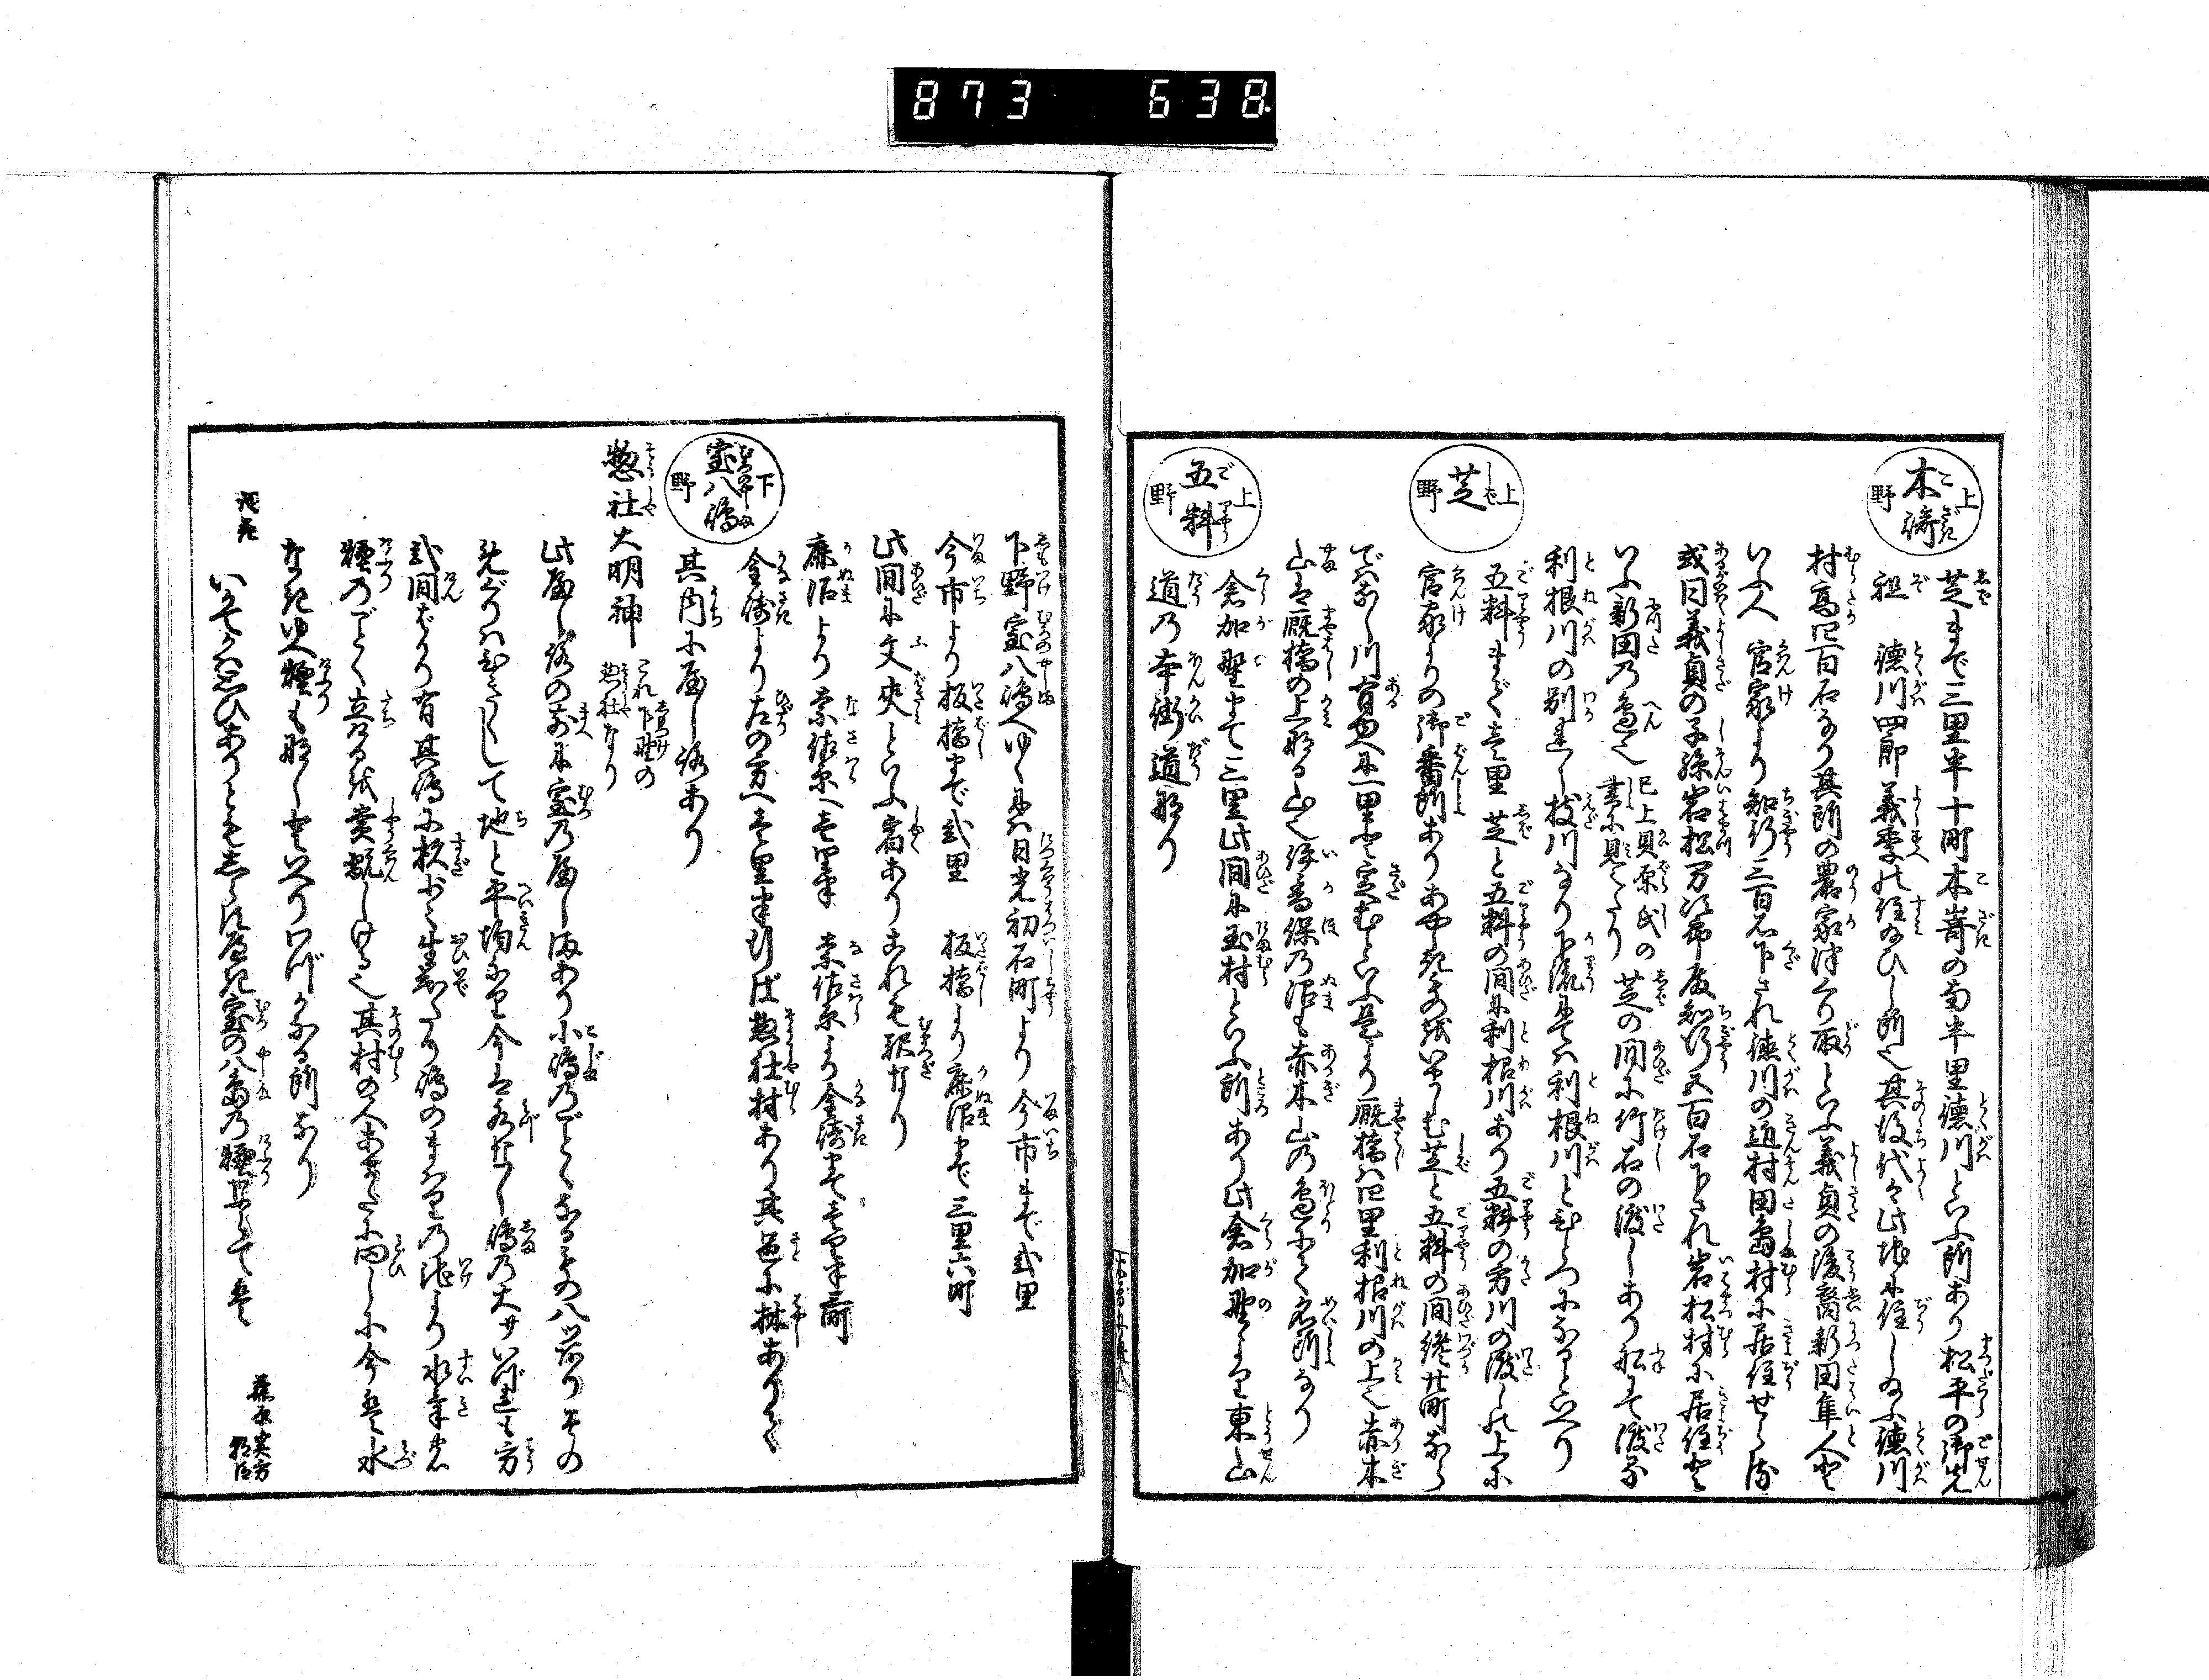 873 638
上野 木崎
芝まで三里半十町木崎の南半里徳川といふ所あり松平の御先
祖 徳川四郎義季の住給ひし所也其後代々此地に住し給ふ徳川
村高四百石なり其所の農家 といふ義貞の後裔新田隼人と
いふ人 官家より知行三百石下され徳川の近村田嶋村に居住せらる
或曰義貞の子孫岩松万次郎殿知行五百石下され岩松村に居住と
いふ新田の邉也 已上貝原氏の書に見へたり 芝の間に竹石の渡しあり船にて渡る
利根川の別れし枝川なり下流にては利根川とひとつになると云へり
上野 芝
五料まで壱里 芝と五料の間に利根川あり五料の方川の渡しの上に
官家よりの御番所あり む? 芝と五料の間纔廿町なら
でなし川有ゆへに一里と定むといふ是より厩橋は四里利根川の上也赤木
山は厩橋の上なる山也伊香保の沼も赤木山の邉にて名所なり
上野 五料
倉加野まで三里此間に玉村といふ所あり此倉加野より東山
道の本街道なり
下野室八嶋へゆくには日光初石町より今市まで弐里
今市より板橋まで弐里 板橋より鹿沼まで三里六町
此間に文夾といふ宿ありこれも駅なり
鹿沼より奈佐原へ壱里半 奈佐原より金崎まで壱里半
金崎より左の方へ壱里半行ば惣社村あり其邑に林ありて
其内に屋しろあり
下野 室八嶋
惣社大明神 これ下野の惣社なり
此屋しろの前に室の屋しまあり小嶋のごとくなるもの八ツありその
めぐりはひきくして地と平均なり今は水なし嶋の大サいづれも方
弐間ばかり有其嶋に杉少々生たり嶋のまはりの池より水気
烟のごとく立けるを賞翫しける也其村の人あまたに問しに今は水
なきゆへ烟も

なしと云へりいづかなる所なり
いかでかは思ひありともしらすべき室の八嶋の烟ならでは
藤原実方朝臣